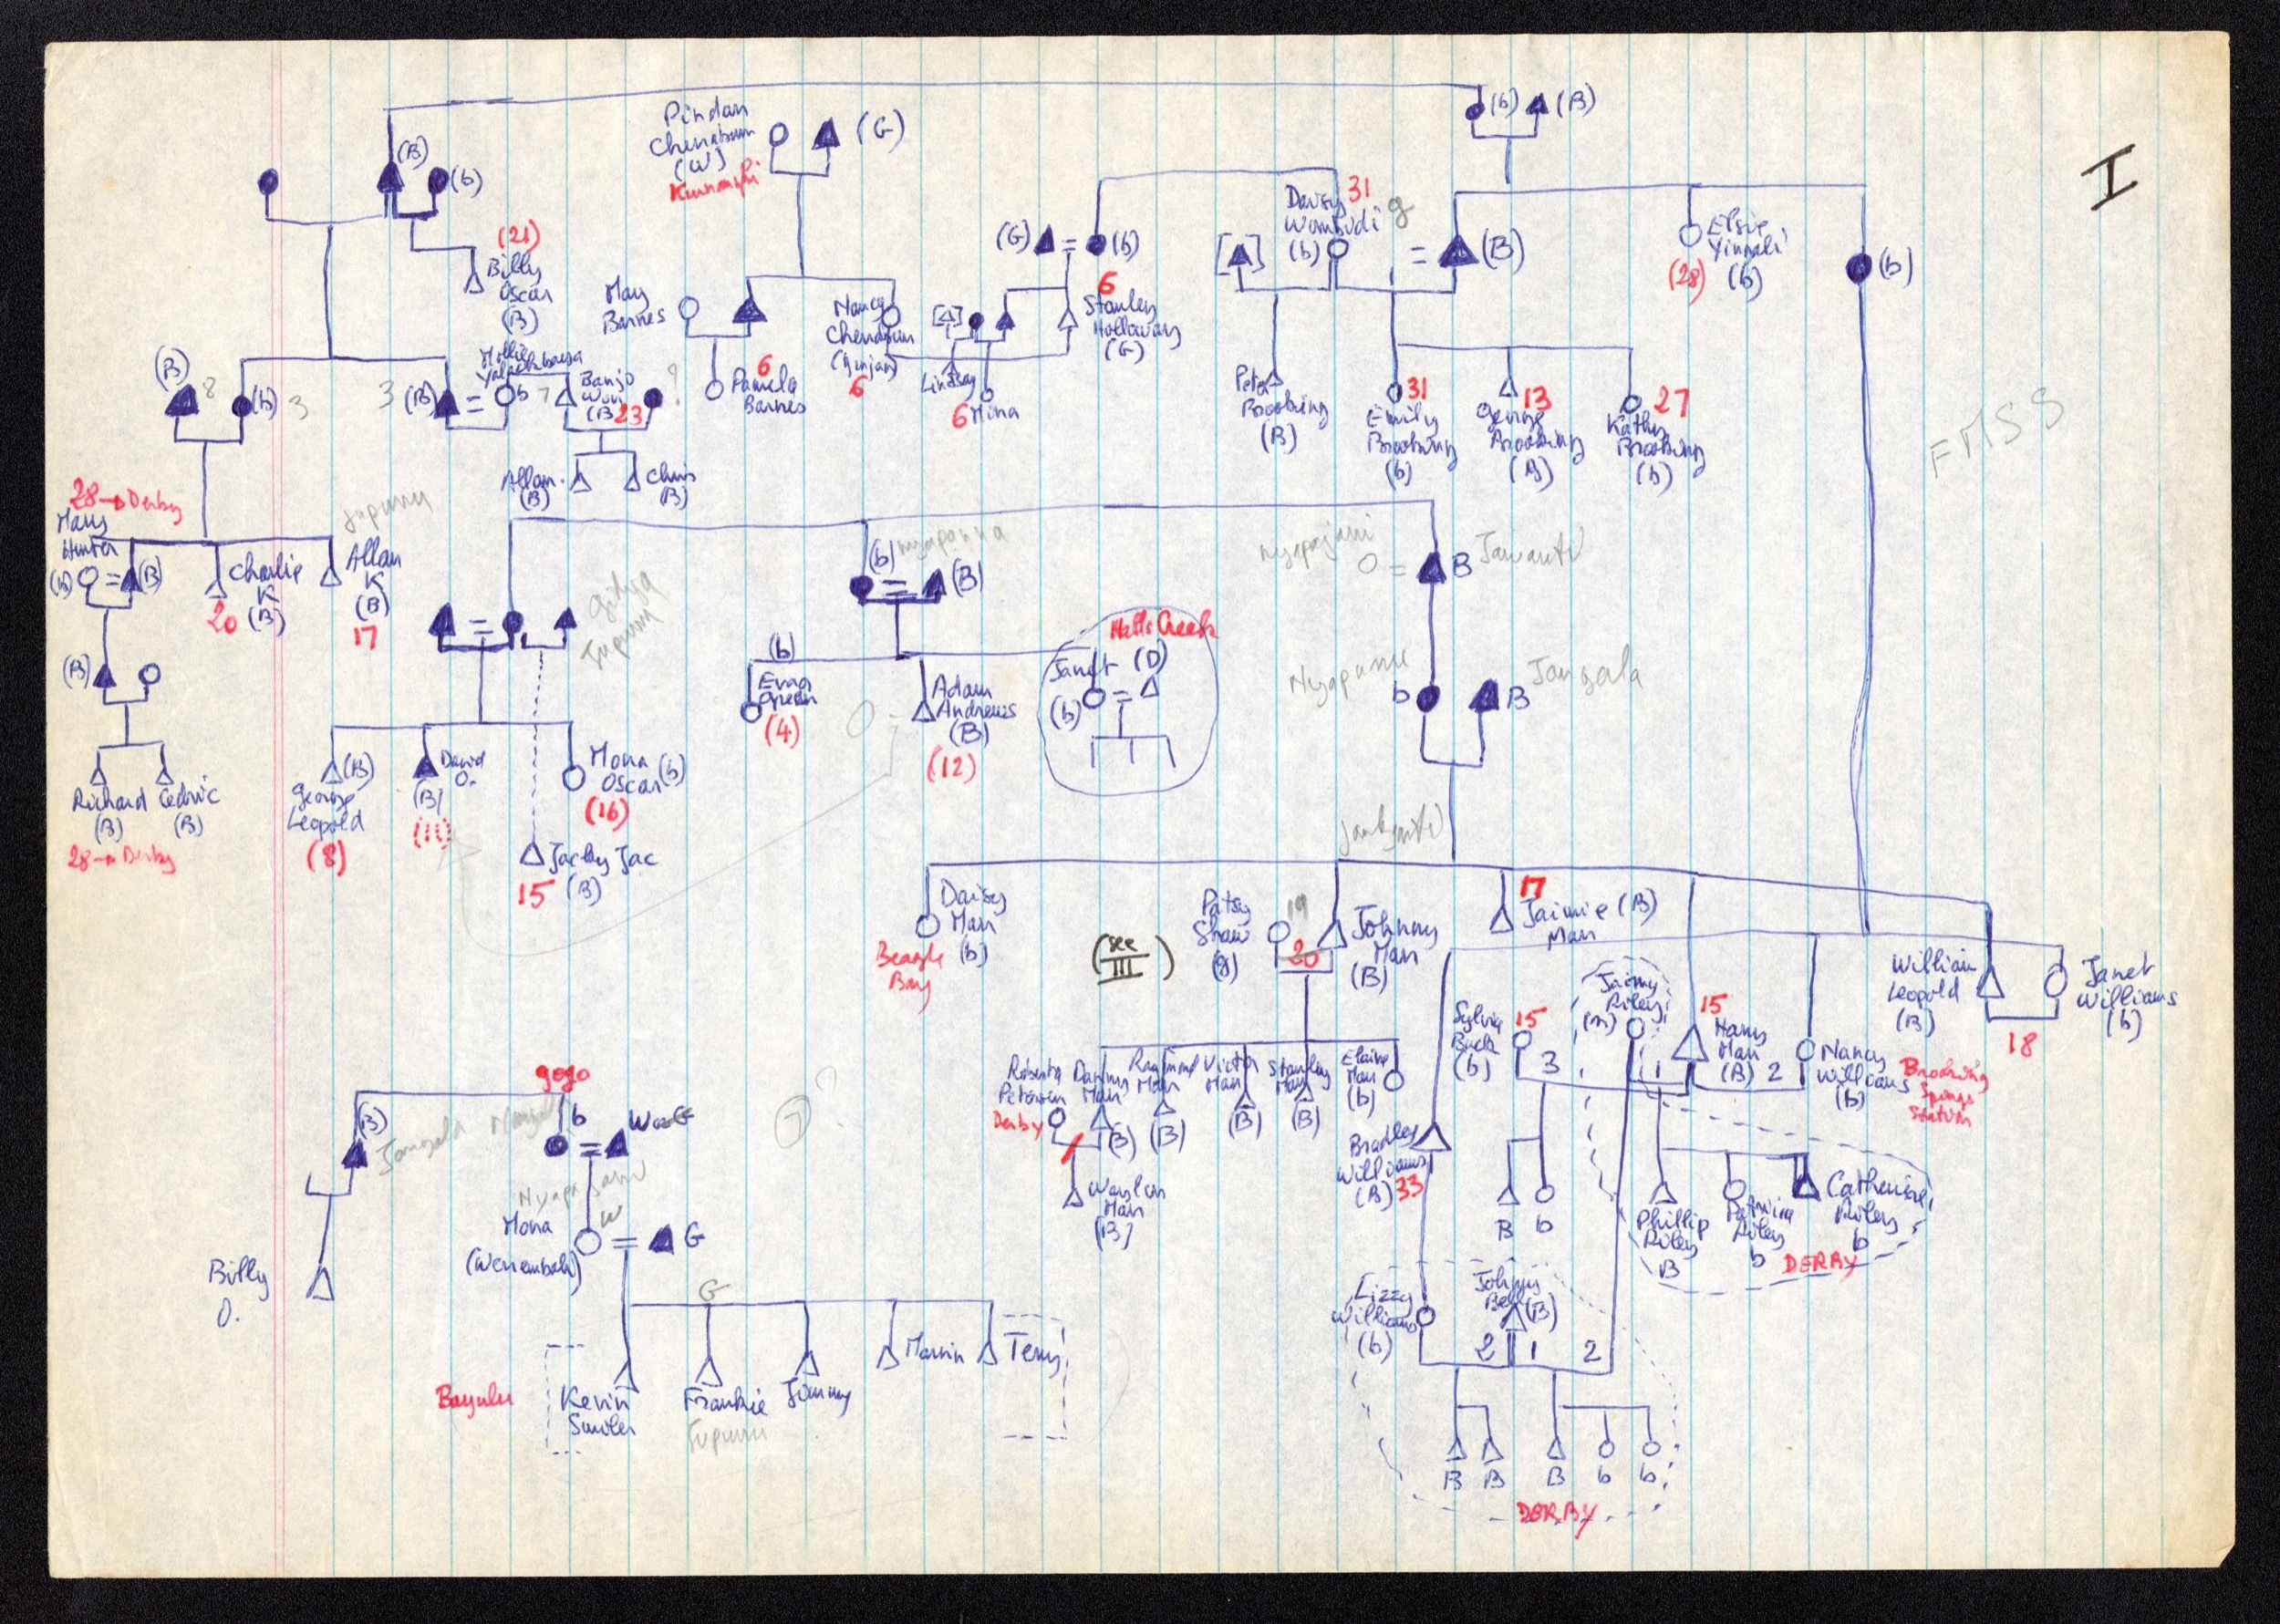 I
(b) (B)
Pindan
(W)
(G)
(B)
(b)
(21)
Billy
Oscar
(B)
Daisy 31
(b)
g
(G) = (b)
= (B)
Elsie
(28) (b)
(b)
May
Barnes
6
Pamela
Barnes
Nancy
6
6
Stanley
Holloway
(G)
Lindsay
6 Mina
(B) 8
(b) 3
3 (B) =
Mollie
b 7
Banjo
(B) 23
?
Allan
(B)
Chris
(B)
Peter
Brooking
(B)
31
Emily
Brooking
(b)
13
George
Brooking
(B)
27
Kathy
Brooking
(b)
FMSS
28 → Derby
Mary
Hunter
(b) = (B)
Charlie
K
20 (B)
Jupurru
Allan
K
(B)
17
(B)
Richard
(B)
Cedric
(B)
28 → Derby
=
Jupurru
(b)
= (B)
Nyapajarri
= B
Nyapurru
b
B Jangala
(b)
(4)
Adam
Andrews
(B)
(12)
Halls Creek
Janet (D)
(b) =
(B)
George
Leopold
(8)
David
O.
(B)
(11)
Mona
Oscar (b)
(16)
Jacky Jac
15 (B)
Daisy
Man
(b)
Beagle
Bay
(see
III)
Patsy
Shaw
(g)
19
20
Johnny
Man
(B)
17
Jaimie (B)
Man
William
Leopold
(B)
Janet
Williams
(b)
18
Sylvia
Buck
(b)
15
3
Riley
(m)
15
Harry
Man
(B)
1
2
Nancy
Williams
(b)
Brooking
Springs
Station
Roberta
Peterson
Derby
Danny
Man
(B)
Raymond
Man
(B)
Victor
Man
(B)
Stanley
Man
(B)
Elaine
Man
(b)
Waylon
Man
(B)
Bradley
Williams
(B) 33
B b
Phillip
Riley
B
Patricia
Riley
b
Catherine
Riley
b
DERBY
gogo
(B)
Jangala
b
=
7 ?
Nyapajarri
Mona
W
= G
Billy
O.
G
Bayulu
Kevin
Smiler
Frankie
Jupurru
Jimmy
Marvin
Terry
Lizzy
Williams
(b)
Johnny
Bell
(B)
2 1 2
B B B b b
DERBY